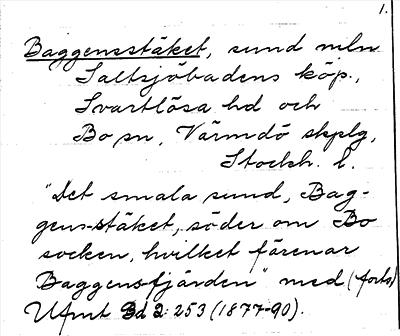 1.
Baggensstäket, sund mln
Saltsjöbadens köp.,
Svartlösa hd och
Bo sn, Värmdö skplg,
Stockh. l.
"Det smala sund, Bag-
gens-stäket, söder om Bo
socken, hvilket förenar
Baggensfjärden" med (forts)
Ufmt Bd 2: 253 (1877-90).